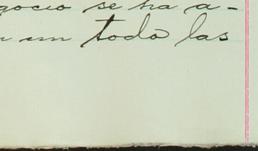 gocio se ha a-
n un todo las